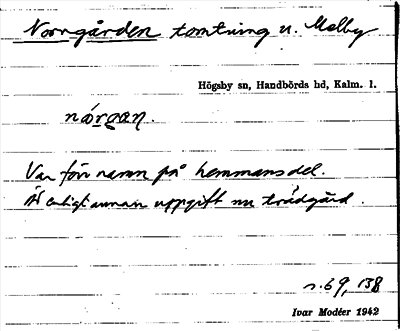 Norrgården tomtning u. Melby
Högsby sn, Handbörds hd, Kalm. l.
nárgan.
Var förr namn på hemmansdel.
Är enligt annan uppgift nu trädgård.
s. 69, 138
Ivar Modéer 1942